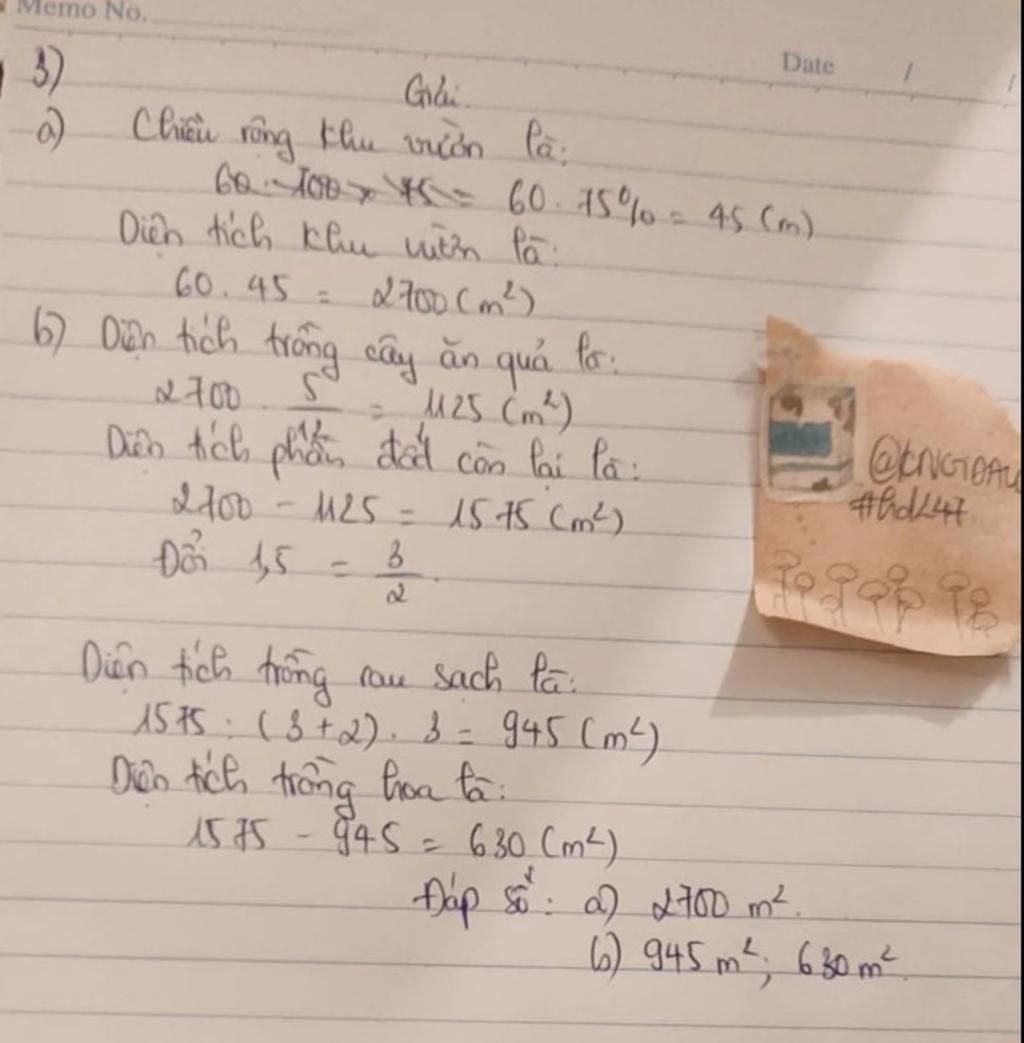 Memo No.
Date / /
3)
Giải.
a) Chiều rộng khu vườn là:
60 : 100 x 75 = 60 . 75% = 45 (m)
Diện tích khu vườn là:
60 . 45 = 2700 (m²)
b) Diện tích trồng cây ăn quả là:
2700 . 5/12 = 1125 (m²)
Diện tích phần đất còn lại là:
2700 - 1125 = 1575 (m²)
Đổi 1,5 = 3/2.
Diện tích trồng rau sạch là:
1575 : (3 + 2) . 3 = 945 (m²)
Diện tích trồng hoa là:
1575 - 945 = 630 (m²)
Đáp số: a) 2700 m².
b) 945 m²; 630 m².